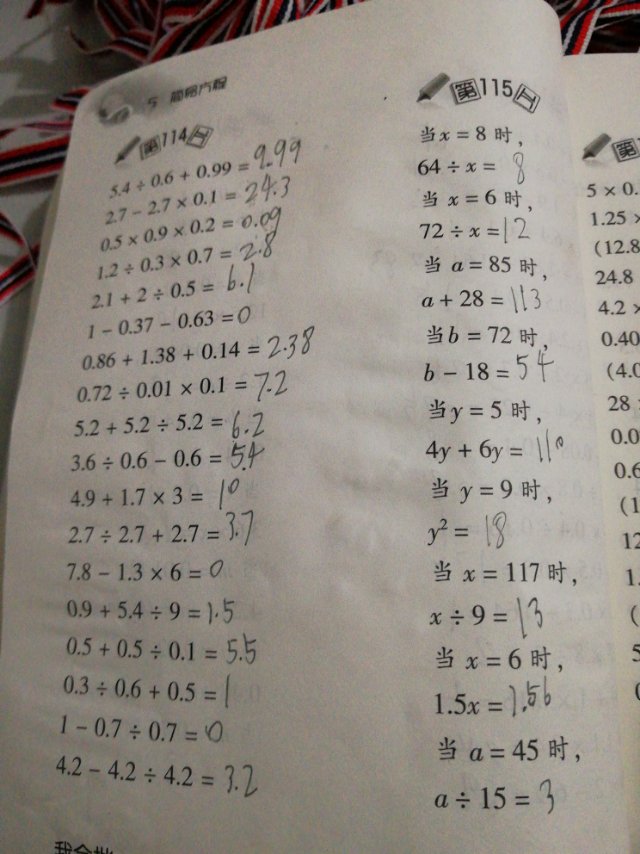 5 简易方程
第114页
5.4 ÷ 0.6 + 0.99 = 9.99
2.7 − 2.7 × 0.1 = 24.3
0.5 × 0.9 × 0.2 = 0.09
1.2 ÷ 0.3 × 0.7 = 2.8
2.1 + 2 ÷ 0.5 = 6.1
1 − 0.37 − 0.63 = 0
0.86 + 1.38 + 0.14 = 2.38
0.72 ÷ 0.01 × 0.1 = 7.2
5.2 + 5.2 ÷ 5.2 = 6.2
3.6 ÷ 0.6 − 0.6 = 5.4
4.9 + 1.7 × 3 = 10
2.7 ÷ 2.7 + 2.7 = 3.7
7.8 − 1.3 × 6 = 0
0.9 + 5.4 ÷ 9 = 1.5
0.5 + 0.5 ÷ 0.1 = 5.5
0.3 ÷ 0.6 + 0.5 = 1
1 − 0.7 ÷ 0.7 = 0
4.2 − 4.2 ÷ 4.2 = 3.2
第115页
当 x = 8 时，
64 ÷ x = 8
当 x = 6 时，
72 ÷ x = 12
当 a = 85 时，
a + 28 = 113
当 b = 72 时，
b − 18 = 54
当 y = 5 时，
4y + 6y = 110
当 y = 9 时，
y² = 18
当 x = 117 时，
x ÷ 9 = 13
当 x = 6 时，
1.5x = 7.56
当 a = 45 时，
a ÷ 15 = 3
第
5 × 0.
1.25 ×
(12.8
24.8
4.2 ×
0.40
(4.0
28 ÷
0.0
0.6
(1
12
1.
(
5